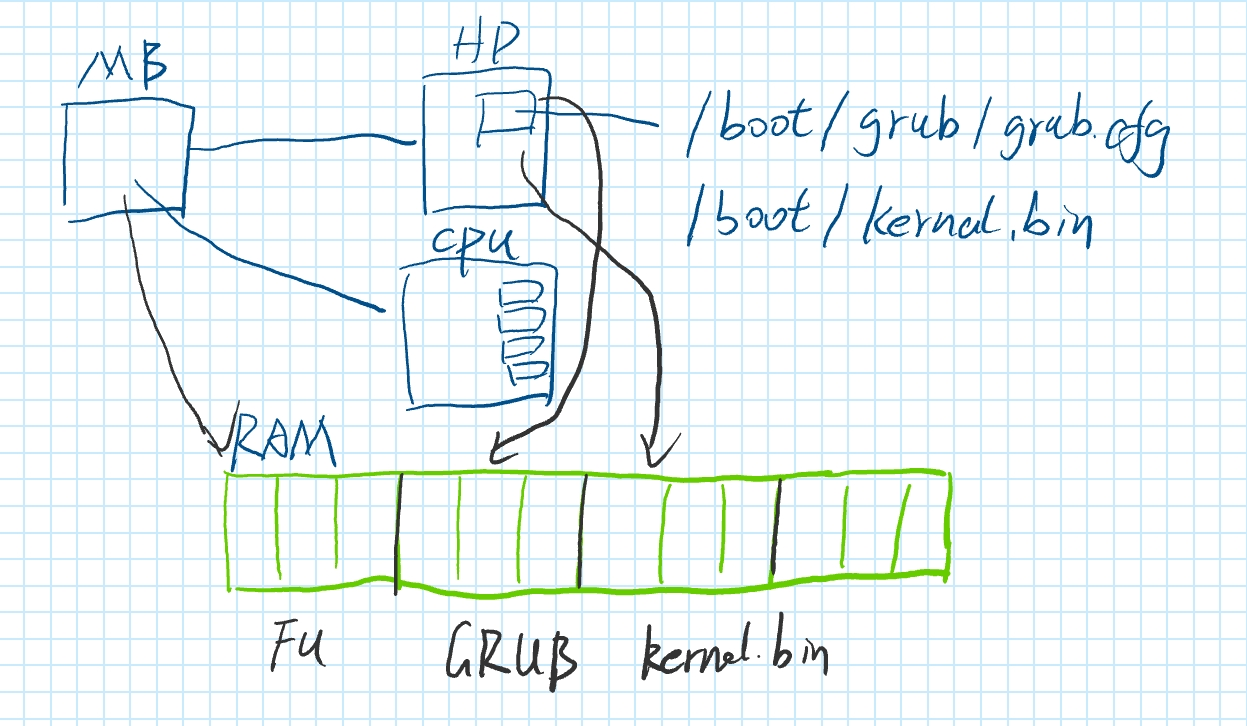 MB
HD
/boot/grub/grub.cfg
/boot/kernal.bin
cpu
RAM
FU
GRUB
kernal.bin